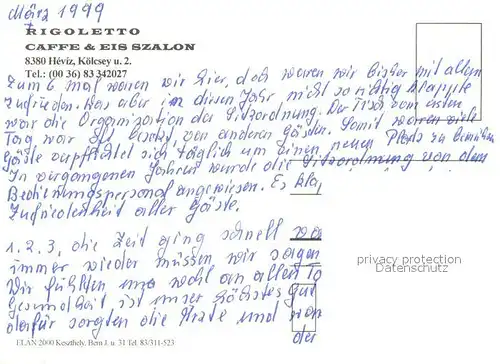 März 1999
RIGOLETTO
CAFFE & EIS SZALON
8380 Hévíz, Kölcsey u. 2.
Tel.: (00 36) 83 342027
Zum 6 mal waren wir hier, doch waren wir bisher mit allem
zufrieden. Was aber in diesem Jahr nicht so richtig klappte
war die Organisation der Sitzordnung. Der Tisch vom ersten
Tag war besetzt, von anderen Gästen. Somit waren viele
Gäste verpflichtet sich täglich um einen neuen Platz zu bemühen
In vergangenen Jahren wurde die Sitzordnung von dem
Bedienungspersonal angewiesen. Es kla
Zufriedenheit aller Gäste.
1. 2. 3, die Zeit ging schnell vo
immer wieder müssen wir sagen
Wir fühlten uns wohl an allen To
Gesundheit, ist unser höchstes Gut
dafür sorgten die Ärzte und von
der
privacy protection
Datenschutz
ELAN 2000 Keszthely, Bem J. u. 31 Tel. 83/311-523